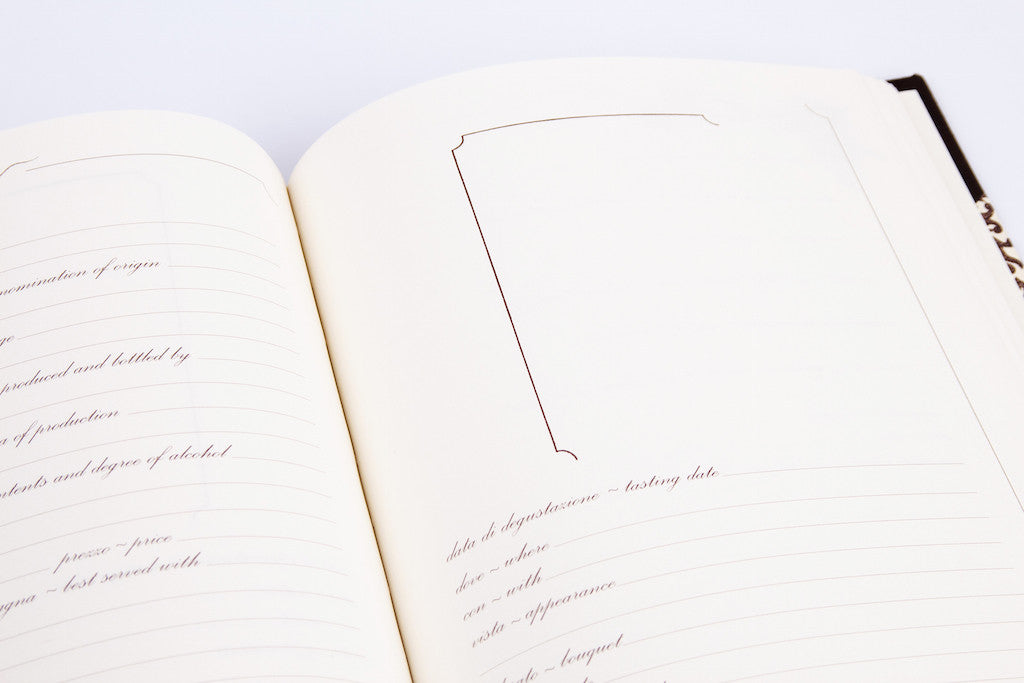 of origin
produced and bottled by
of production
and degree of alcohol
prezzo ~ price
~ best served with
data di degustazione ~ tasting date
dove ~ where
con ~ with
vista ~ appearance
~ bouquet